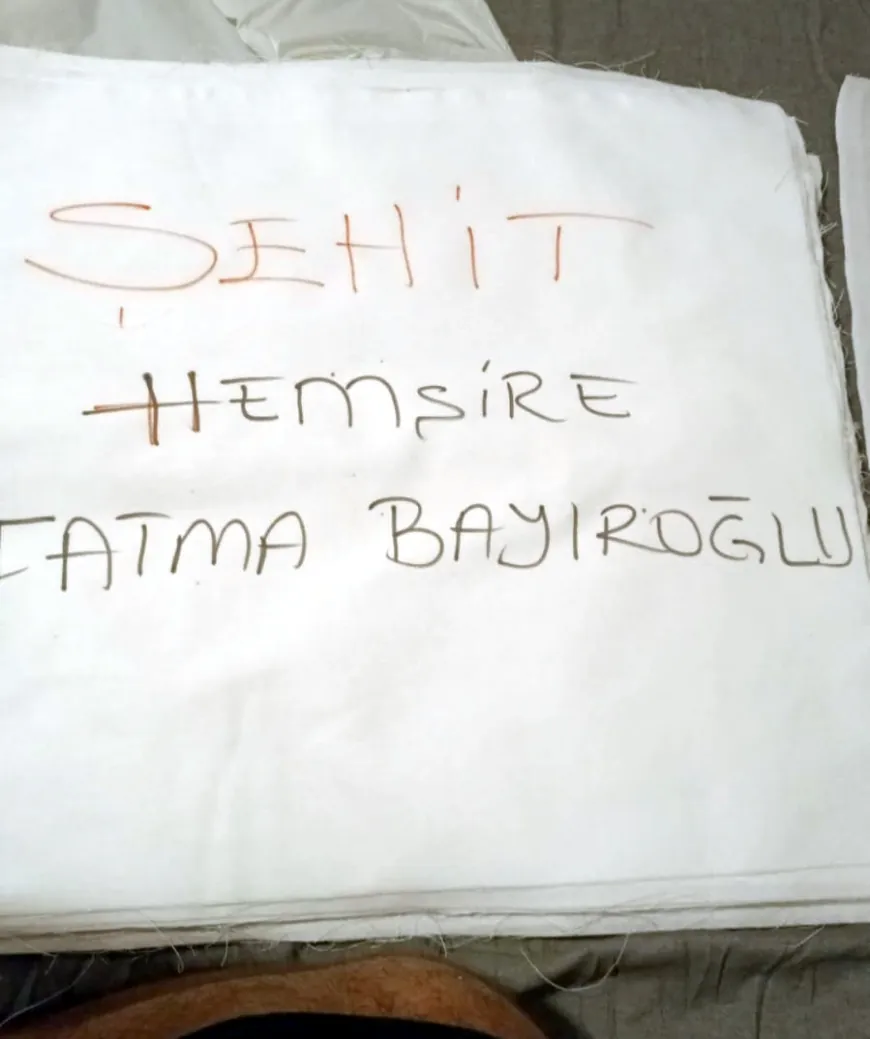 ŞEHİT
HEMŞİRE
FATMA BAYIROĞLU